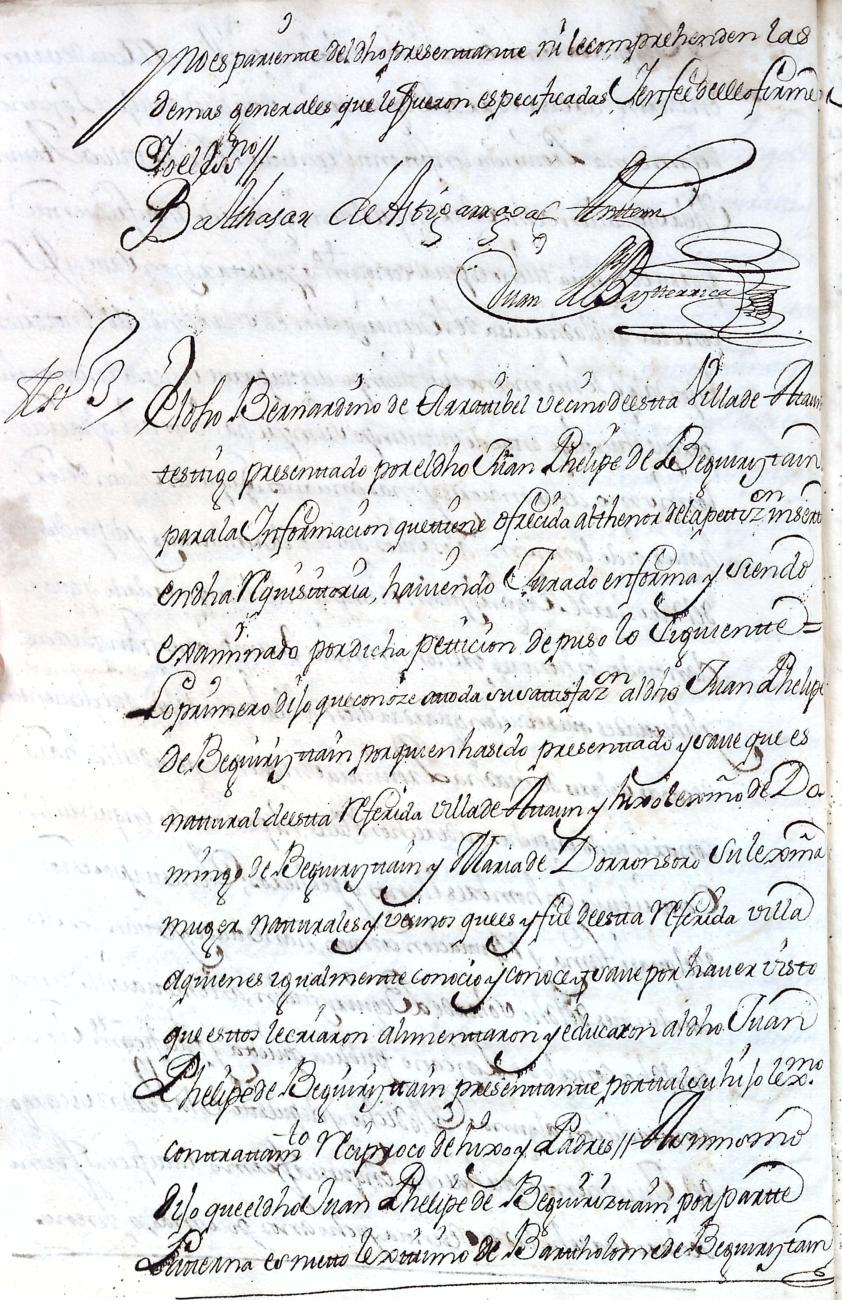 no es pariente del dho presentante ni le comprehenden las
demas generales que le fueron especificadas, Y en fee de ello firmo
Yo el Ssno //
Balthasar de Astigarraga Anttem
Juan de Baztterrica
Testt
El dho Bernardino de Arratibel vecino de estta Villa de Attaun
testtigo presenttado por el dho Juan Phelipe de Beguiryttain
para la Informacion que ttiene ofrecida al thenor de la pettizon insertta
en dha Rquisittoria, haviendo Jurado en forma y siendo
examinado por dicha petticion depuso lo siguientte =
Lo primero dijo que conoze a ttoda su sattisfazon al dho Juan Phelipe
de Beguiryttain por quien ha sido presenttado y save que es
nattural de estta Rferida villa de Attaun y hixo lexmo de Do
mingo de Beguiryttain y Maria de Dorronsoro su lexma
muger natturales y vecinos que es y fue de estta Rferida villa
a quienes igualmentte conocio y conoce y save por haver visto
que esttos le criaron alimenttaron y educaron al dho Juan
Phelipe de Beguiryttain presenttantte por ttal su hijo lexmo
con trattamto Rciproco de hixo y Padres // Assimismo
dijo que el dho Juan Phelipe de Beguiriztain por partte
Patterna es nietto lexittimo de Barttholome de Beguiryttain